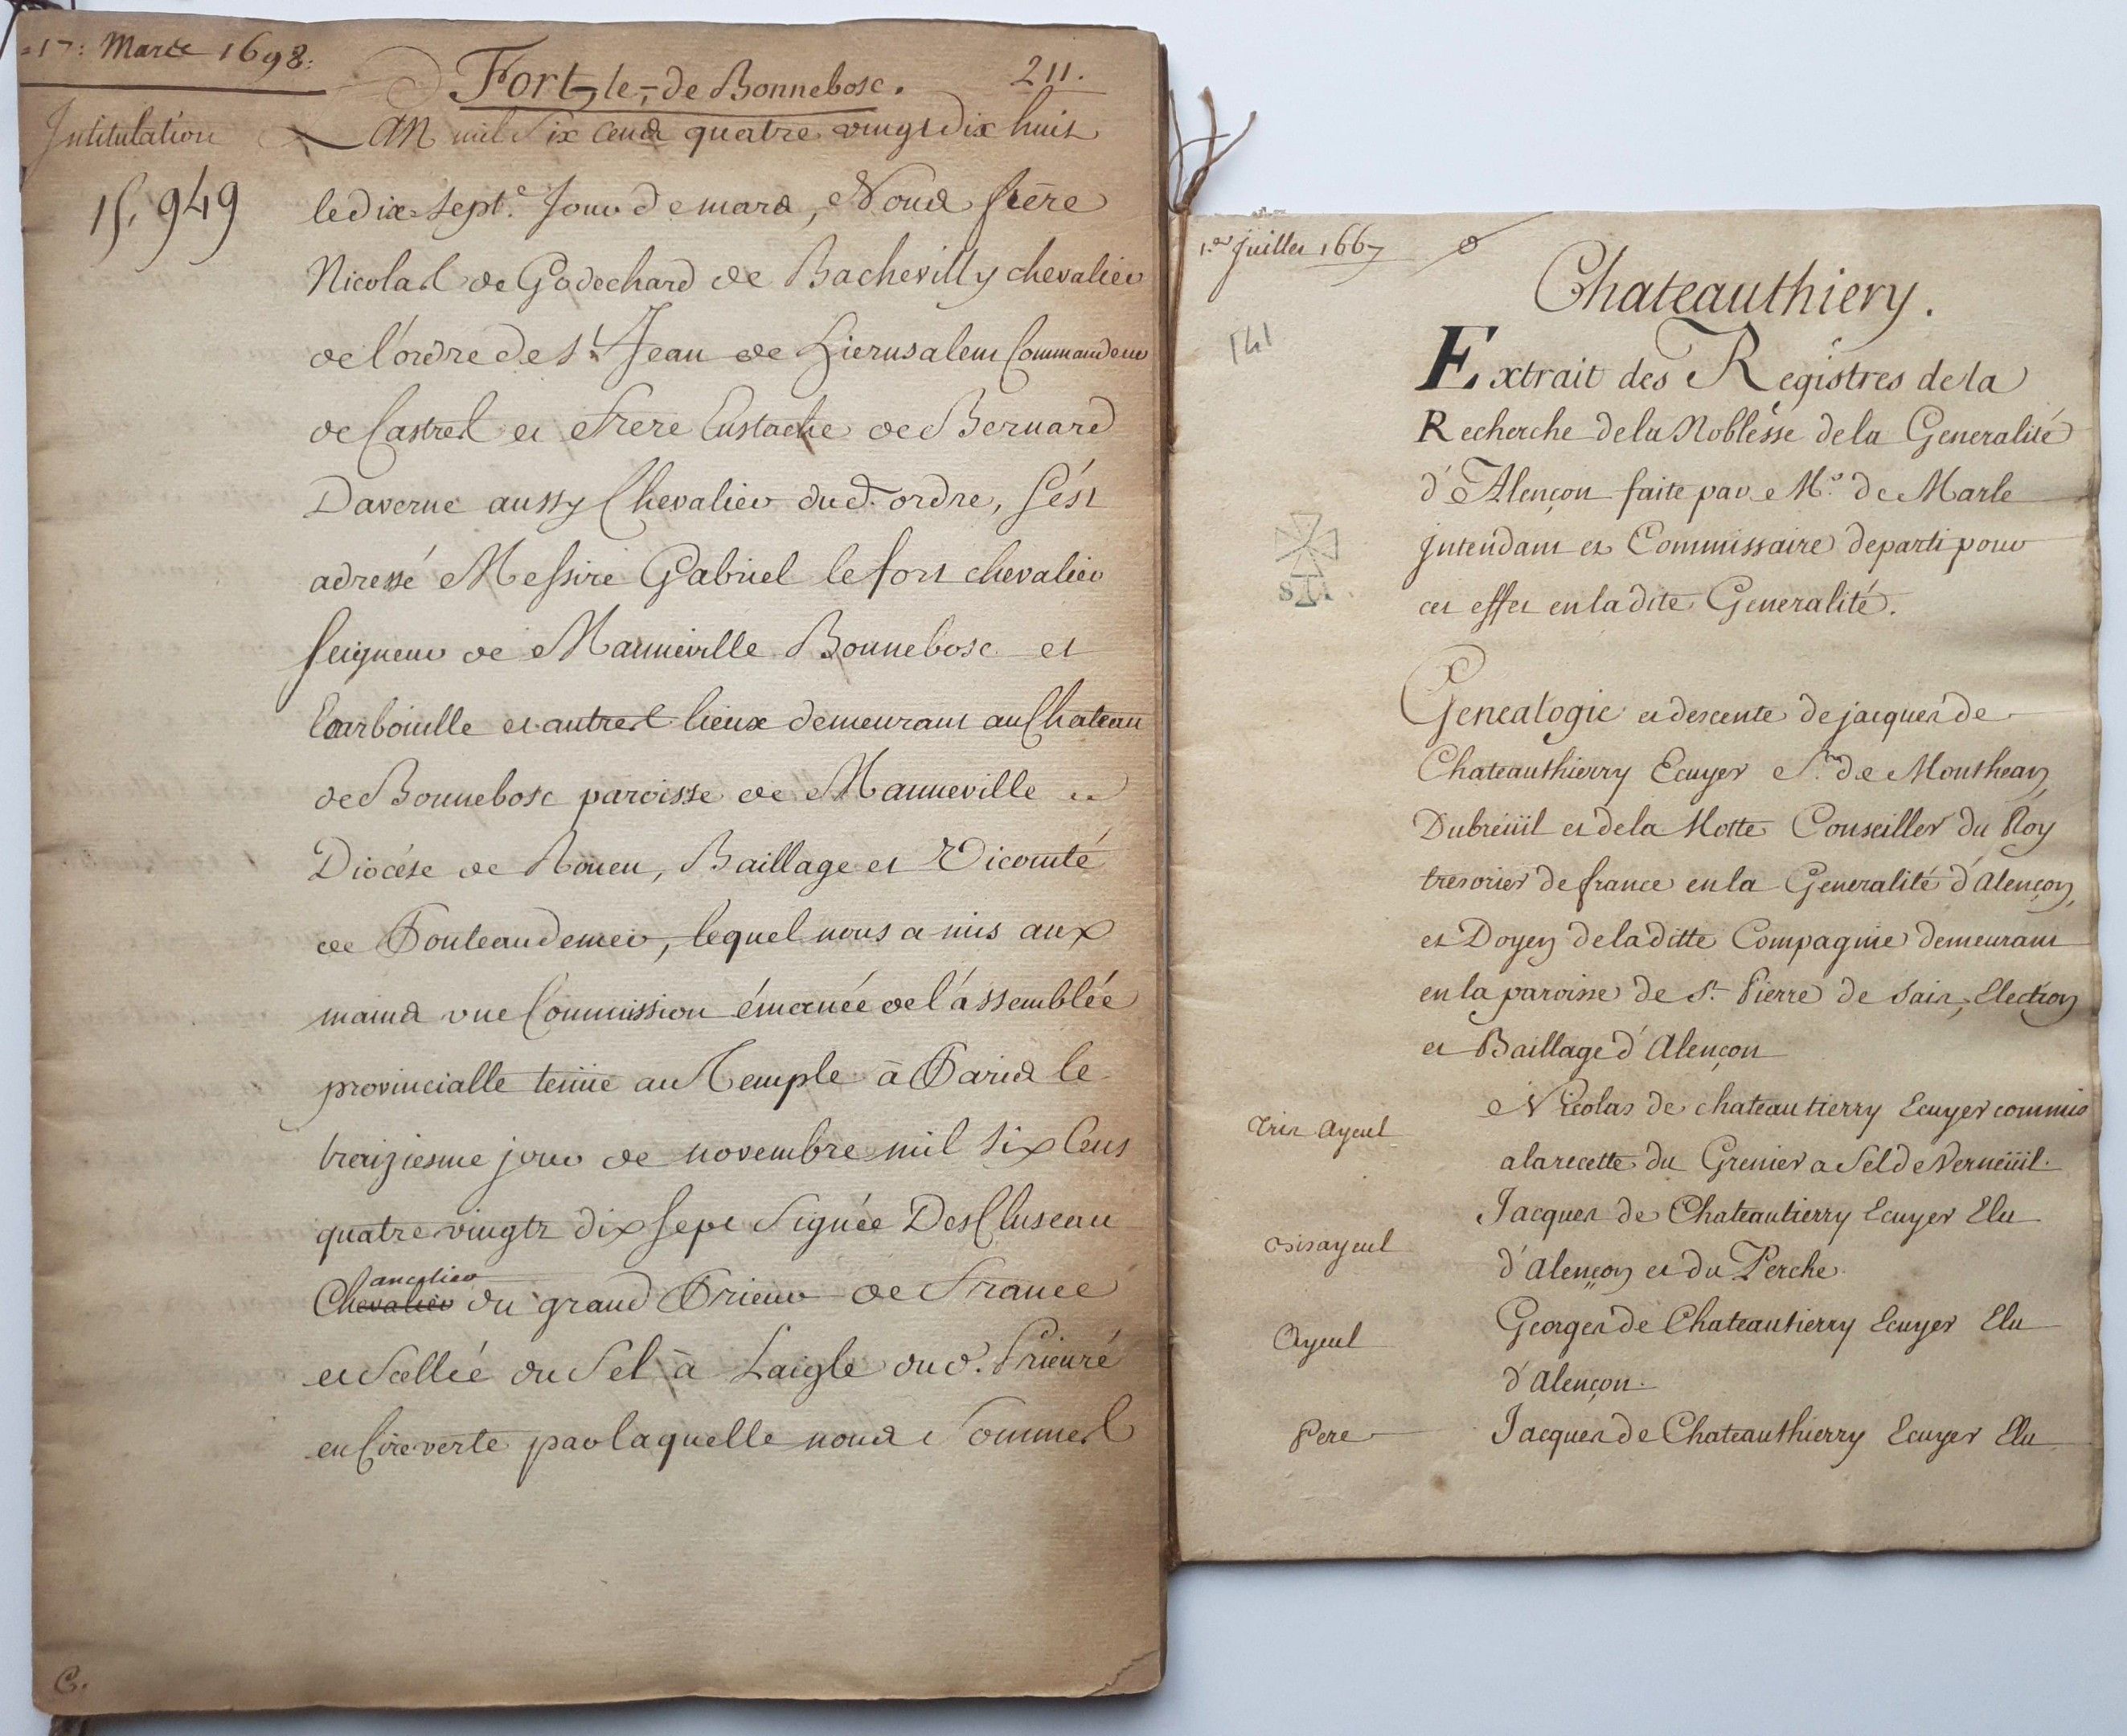 =17: Mars 1698:
Fort, le, de Bonnebosc.
211.
Intitulation
LAN mil Six cens quatre vingt dix huit
15,949
le dix-sept.e Jour de mars, Nous frere
Nicolas de Godechard de Bachevilly chevalier
de l'ordre de St. Jean de Hierusalem Commandeur
de Castres et frere Eustache de Bernard
Daverne aussy Chevalier dud. ordre, s'est
adressé Messire Gabriel le fort chevalier
seigneur de Manneville Bonnebosc et
Carbouille et autres lieux demeurant au Chateau
de Bonnebosc paroisse de Manneville
Diocése de Roüen, Baillage et Vicomté
de Ponteaudemer, lequel nous a mis aux
mains une Commission émanée de l'assemblée
provincialle tenüe au Temple à Paris le
treiziesme jour de novembre mil six Cens
quatre vingtz dix sept Signée DesCluseau
ancelier
Chevalier du grand Prieur de France
et Scellée du Sel à Laigle dud. Prieuré
en Cire verte par laquelle nous Sommes
C.
1.er Juillet 1667
Chateauthiery.
141
Extrait des Registres de la
Recherche de la Noblesse de la Generalité
d'Alençon faite par Mr. de Marle
Intendant et Commissaire departi pour
cet effet en la dite Generalité.
Genealogie et descente de jacques de
Chateauthierry Ecuyer Sr. de Monthean,
Dubreüil et de la Motte Conseiller du Roy
tresorier de france en la Generalité d'Alençon,
et Doyen de la ditte Compagnie demeurant
en la paroisse de St. Pierre de Sain, Election
et Baillage d'Alençon
Tris Ayeul
Nicolas de chateautierry Ecuyer commis
a la recette du Grenier a Sel de Verneüil.
Bisayeul
Jacques de Chateautierry Ecuyer Elu
d'Alençon et du Perche
Ayeul
Georges de Chateautierry Ecuyer Elu
d'Alençon.
Pere
Jacques de Chateauthierry Ecuyer Elu